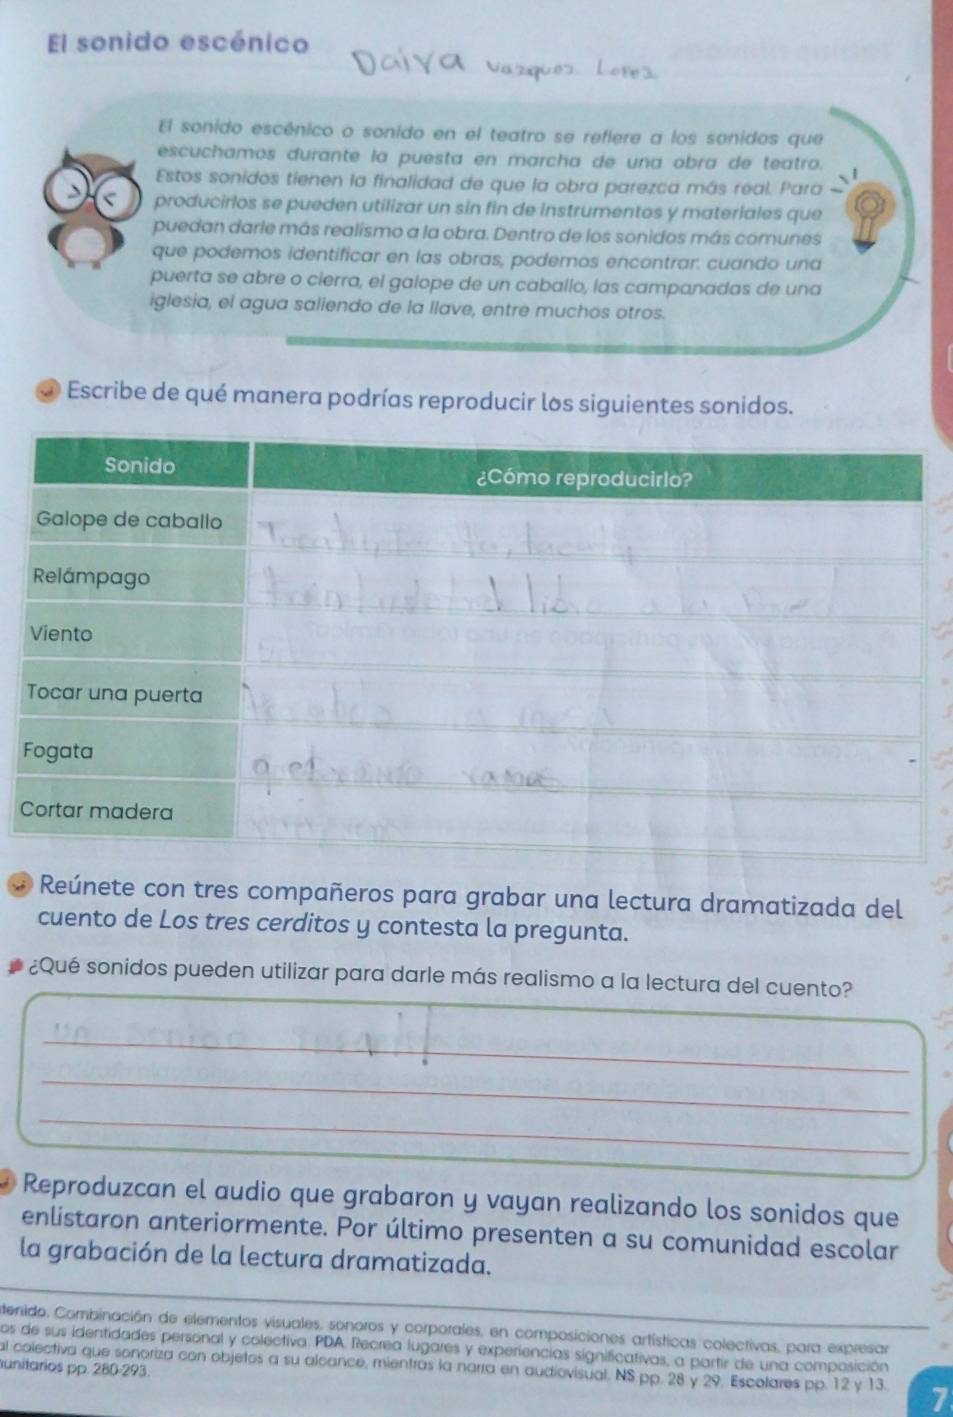 El sonido escénico
Daiva Vazquez Lopez
El sonido escénico o sonido en el teatro se refiere a los sonidos que
escuchamos durante la puesta en marcha de una obra de teatro.
Estos sonidos tienen la finalidad de que la obra parezca más real. Para
producirlos se pueden utilizar un sin fin de instrumentos y materiales que
puedan darle más realismo a la obra. Dentro de los sonidos más comunes
que podemos identificar en las obras, podemos encontrar: cuando una
puerta se abre o cierra, el galope de un caballo, las campanadas de una
iglesia, el agua saliendo de la llave, entre muchos otros.
Escribe de qué manera podrías reproducir los siguientes sonidos.
Sonido ¿Cómo reproducirlo?
Galope de caballo
Relámpago libro a la
Viento
Tocar una puerta
Fogata ramas
Cortar madera
Reúnete con tres compañeros para grabar una lectura dramatizada del
cuento de Los tres cerditos y contesta la pregunta.
¿Qué sonidos pueden utilizar para darle más realismo a la lectura del cuento?
un sonido
Reproduzcan el audio que grabaron y vayan realizando los sonidos que
enlistaron anteriormente. Por último presenten a su comunidad escolar
la grabación de la lectura dramatizada.
tenido. Combinación de elementos visuales, sonoros y corporales, en composiciones artísticas colectivas, para expresar
os de sus identidades personal y colectiva. PDA. Recrea lugares y experiencias significativas, a partir de una composición
al colectiva que sonoriza con objetos a su alcance, mientras la narra en audiovisual. NS pp. 28 y 29. Escolares pp. 12 y 13.
unitarios pp. 280-293.
7